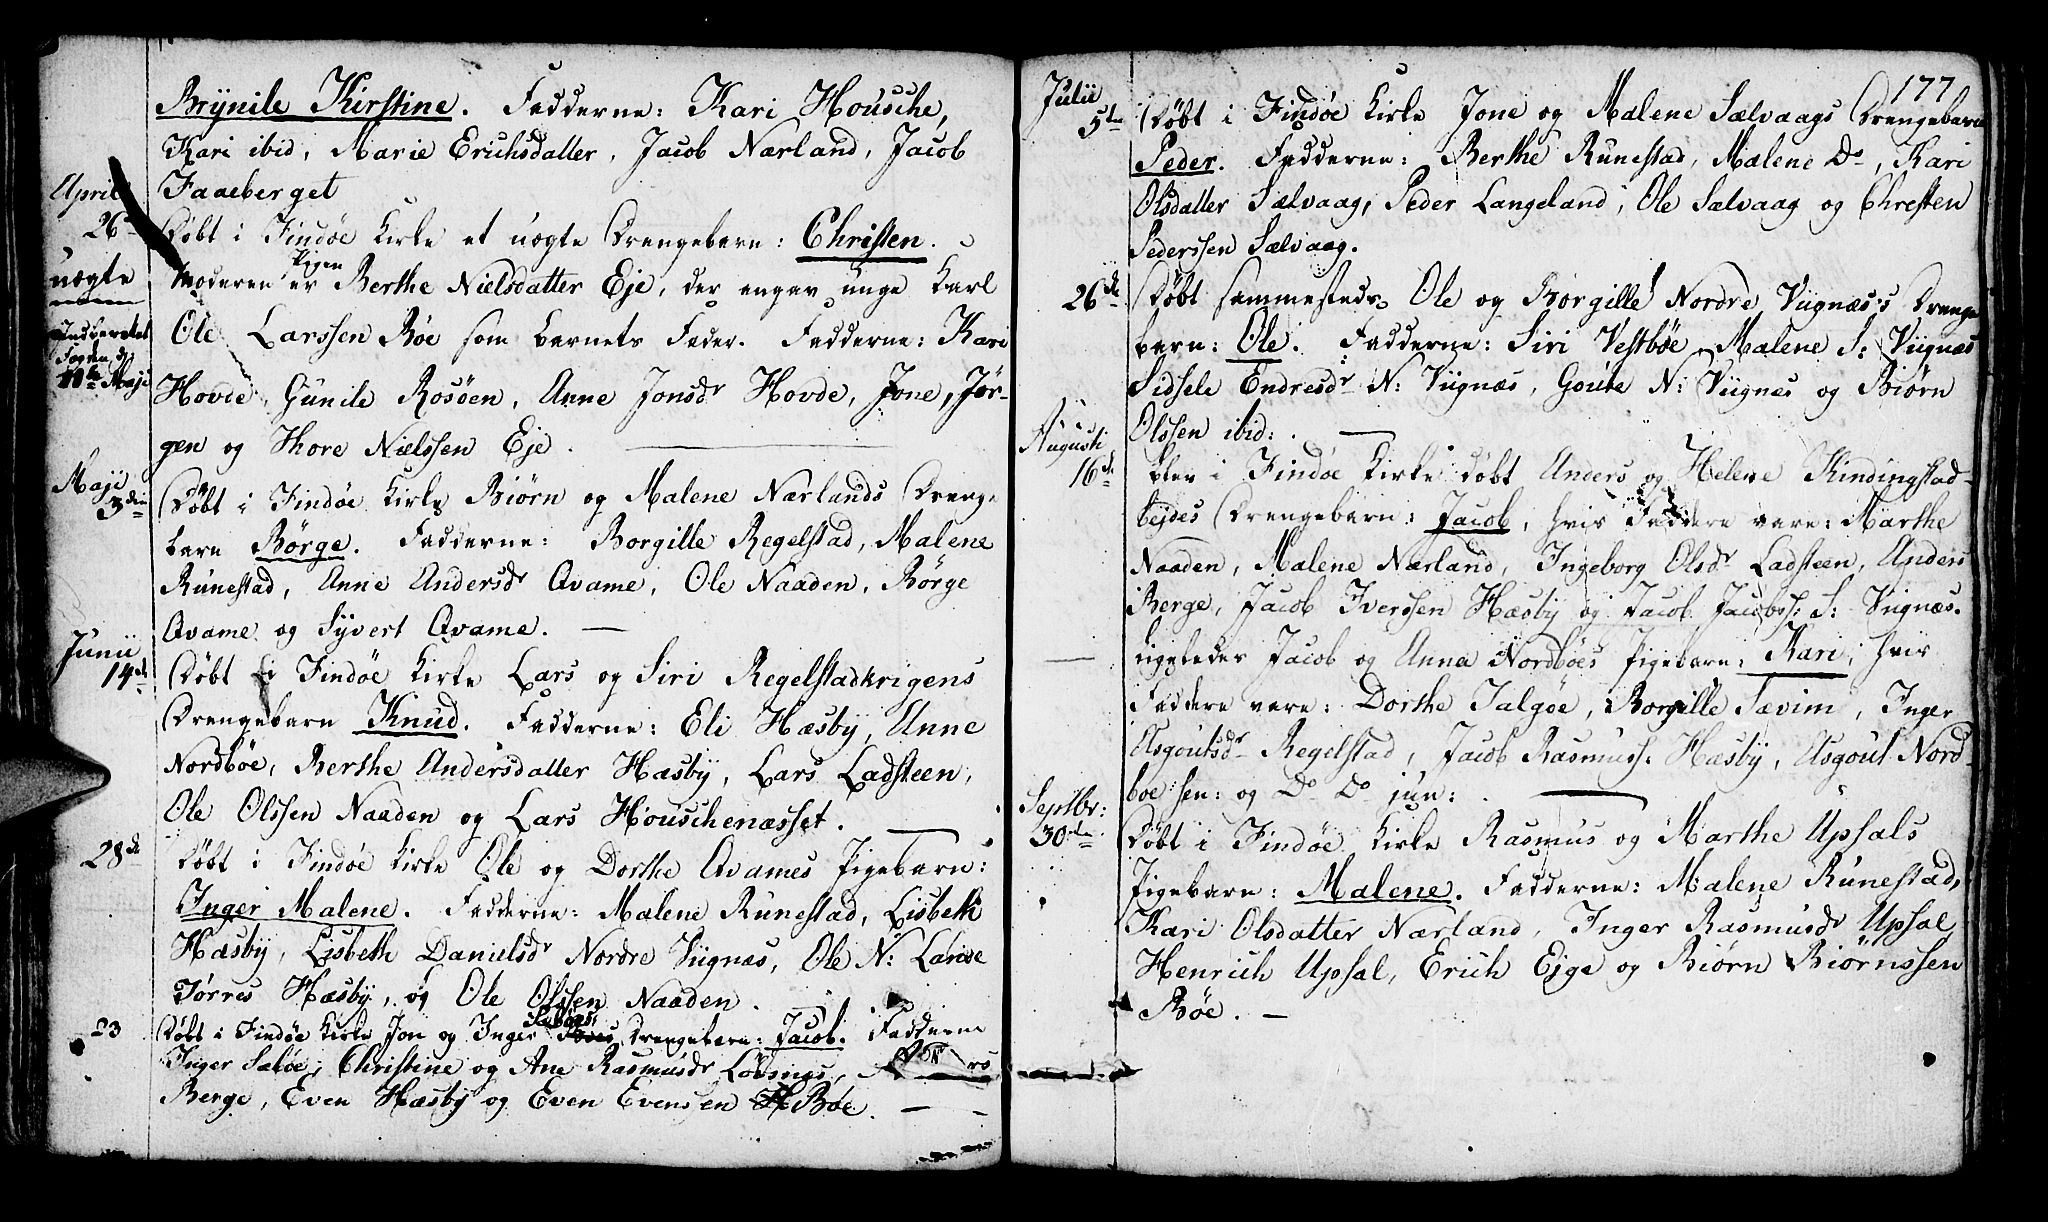 Brynile Kirstine. Fadderne: Kari Housche,
Kari ibid, Marie Erichsdatter, Jacob Nærland, Jacob
Faaeberget
April
26de Døbt i Findøe Kirke et uægte Drengebarn: Christen.
uægte Moderen er Pigen Berthe Nielsdatter Eje, der angav unge Karl
Indberettet Ole Larssen Bøe som Barnets Fader. Fadderne: Kari
11te Maji Hovde, Gunile Rosøen, Anne Jonsdr Hovde, Jone, Jør-
gen og Thore Nielssen Eje.
Maji
3die Døbt i Findøe Kirke Biørn og Malene Nærlands Drenge
barn Børge. Fadderne: Borgille Regelstad, Malene
Runestad, Anne Andersdr Qvame, Ole Naaden, Børge
Qvame og Syvert Qvame.
Junii
14de Døbt i Findøe Kirke Lars og Siri Regelstadkrigens
Drengebarn Knud. Fadderne: Eli Hæsby, Anne
Nordbøe, Berthe Andersdatter Hæsby, Lars Ladsteen,
Ole Olssen Naaden og Lars Houschenæsset.
28de Døbt i Findøe Kirke Ole og Dorthe Qvames Pigebarn:
Inger Malene. Fadderne: Malene Runestad, Lisbeth
Hæsby, Lisbeth Danielsdr Nordre Viignæs, Ole N: Lande
Tørres Hæsby, og Ole Olssen Naaden.
23 Døbt i Findøe Kirke Jon og Inger Drengebarn: Jacob. Fadderne
Inger Saløe, Christine og Ane Rasmusdr
Berge, Even Hæsby og Even Evensen Bøe.
177
Julii
5te Døbt i Findøe Kirke Jone og Malene Sælvaags Drengebarn
Peder. Fadderne: Berthe Runestad, Malene Do, Kari
Olsdatter Sælvaag, Peder Langeland, Ole Sælvaag og Chresten
Pederssen Sælvaag.
26de Døbt sammesteds Ole og Borgille Nordre Viignæs's Drenge
barn: Ole. Fadderne: Siri Vestbøe, Malene S: Viignæs
Sidsele Endresdr N: Viignæs, Goute N: Viignæs og Biørn
Olssen ibid:.
Augusti
16de blev i Findøe Kirke døbt Anders og Helene Kindingstad-
bejdes Drengebarn: Jacob, hvis Faddere vare: Marthe
Naaden, Malene Nærland, Ingeborg Olsdr Ladsteen, Anders
Berge, Jacob Iverssen Hæsby og Jacob Jacobss: S: Viignæs.
ligeledes Jacob og Anna Nordbøes Pigebarn: Kari, hvis
Faddere vare: Dorthe Talgøe, Borgille Sævim, Inger
Asgoutsdr Regelstad, Jacob Rasmuss: Hæsby, Asgout Nord
boe sen: og Do Do jun:.
Septbr:
30te Døbt i Findøe Kirke Rasmus og Marthe Upsals
Pigebarn: Malene. Fadderne: Malene Runestad,
Kari Olsdatter Nærland, Inger Rasmusdr Upsal,
Henrich Upsal, Erich Ejge og Biørn Biørnssen
Bøe.